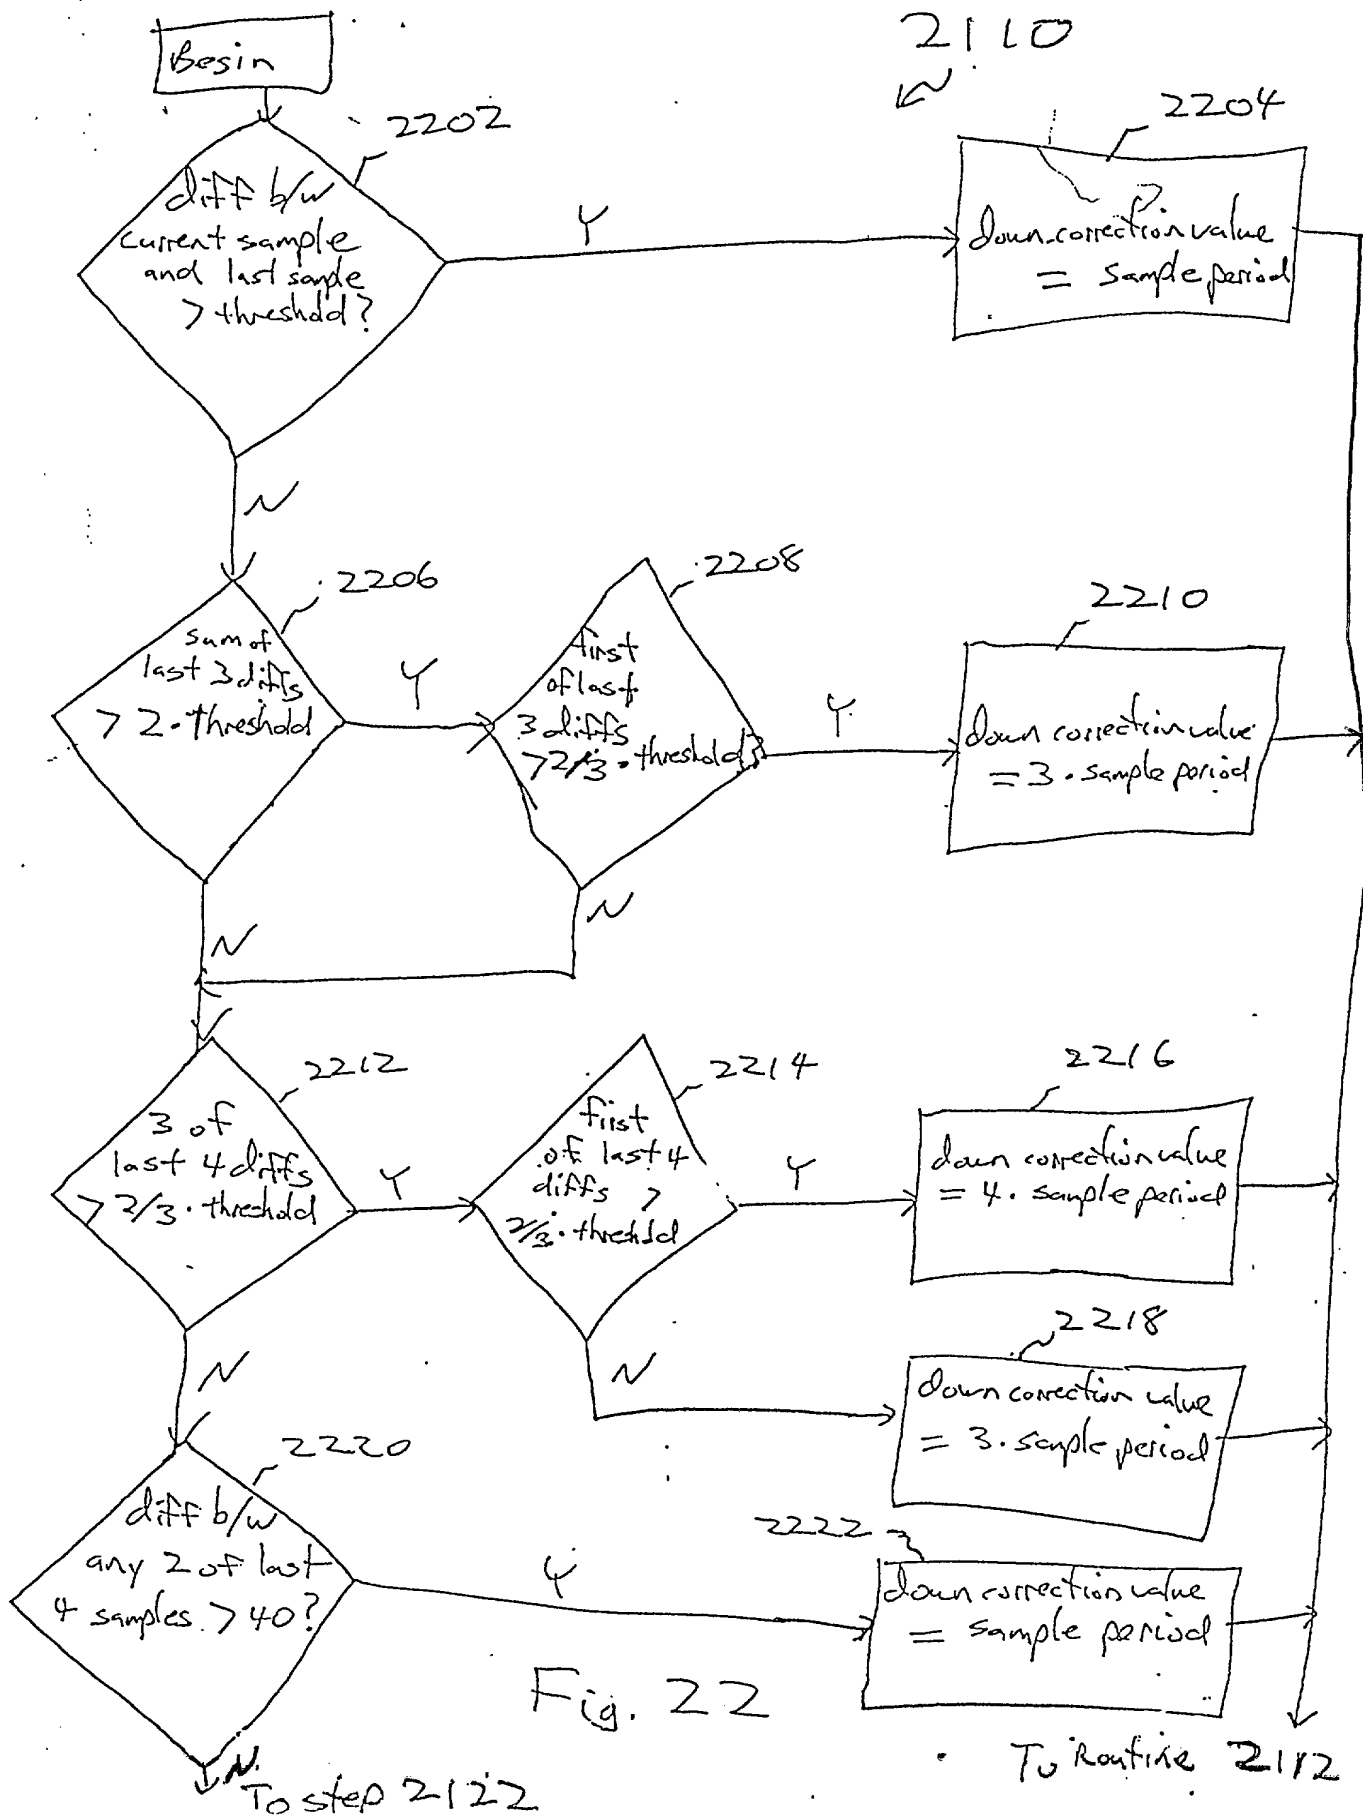 Begin
2110
2202
2204
diff b/w
current sample
and last sample
> threshold?
Y
down-correction value
= sample period
N
2206
2208
2210
sum of
last 3 diffs
> 2 • threshold
Y
first
of last
3 diffs
> 2/3 • threshold?
Y
down correction value
= 3 • sample period
N
N
2212
2214
2216
3 of
last 4 diffs
> 2/3 • threshold
Y
first
of last 4
diffs >
2/3 • threshold
Y
down correction value
= 4 • sample period
N
N
2218
down correction value
= 3 • sample period
2220
diff b/w
any 2 of last
4 samples > 40?
Y
2222
down correction value
= sample period
Fig. 22
N
To step 2122
To Routine 2112